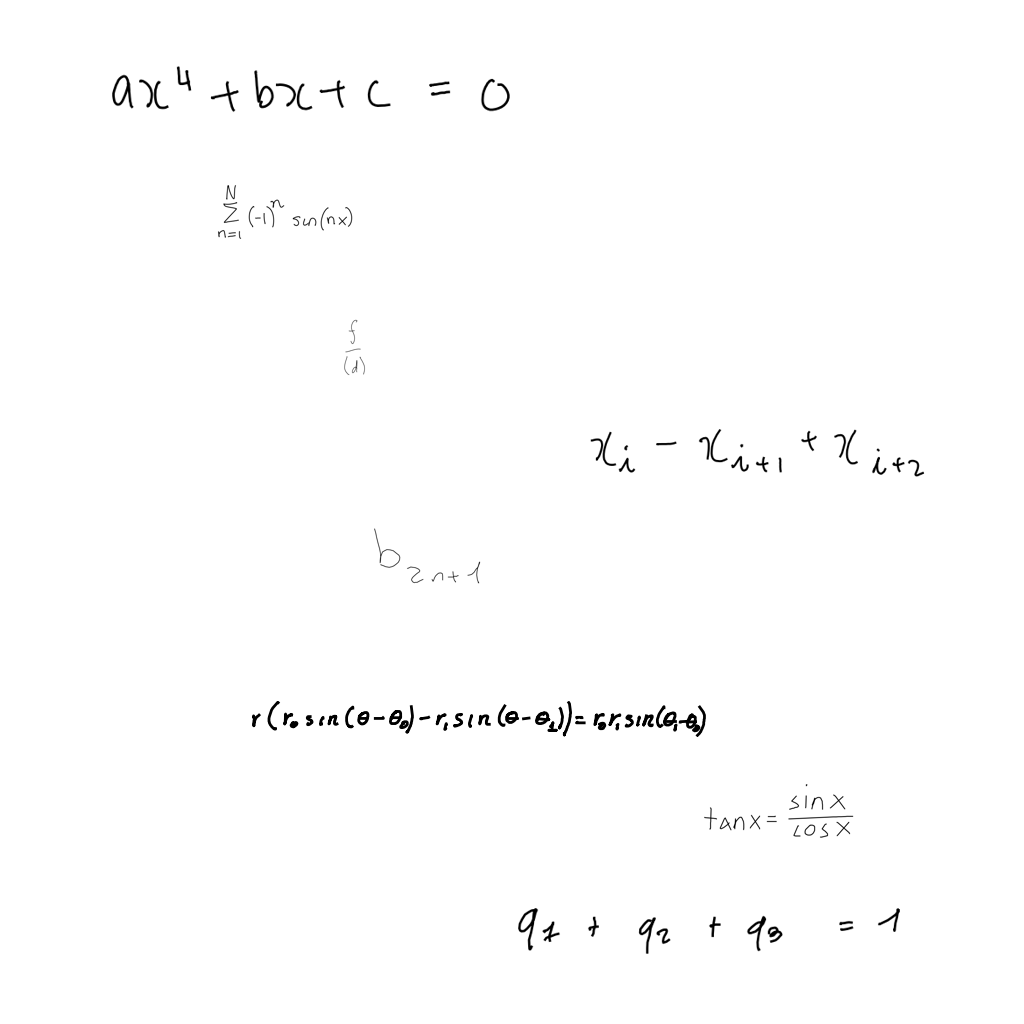 ax⁴ + bx + c = 0
∑_{n=1}^{N} (-1)ⁿ sin(nx)
f/(d)
x_i − x_{i+1} + x_{i+2}
b_{2n+1}
r(r₀ sin(θ−θ₀)−r₁ sin(θ−θ₁))=r₀r₁sin(θ₁−θ₀)
tan x = sin x / cos x
q₁ + q₂ + q₃ = 1